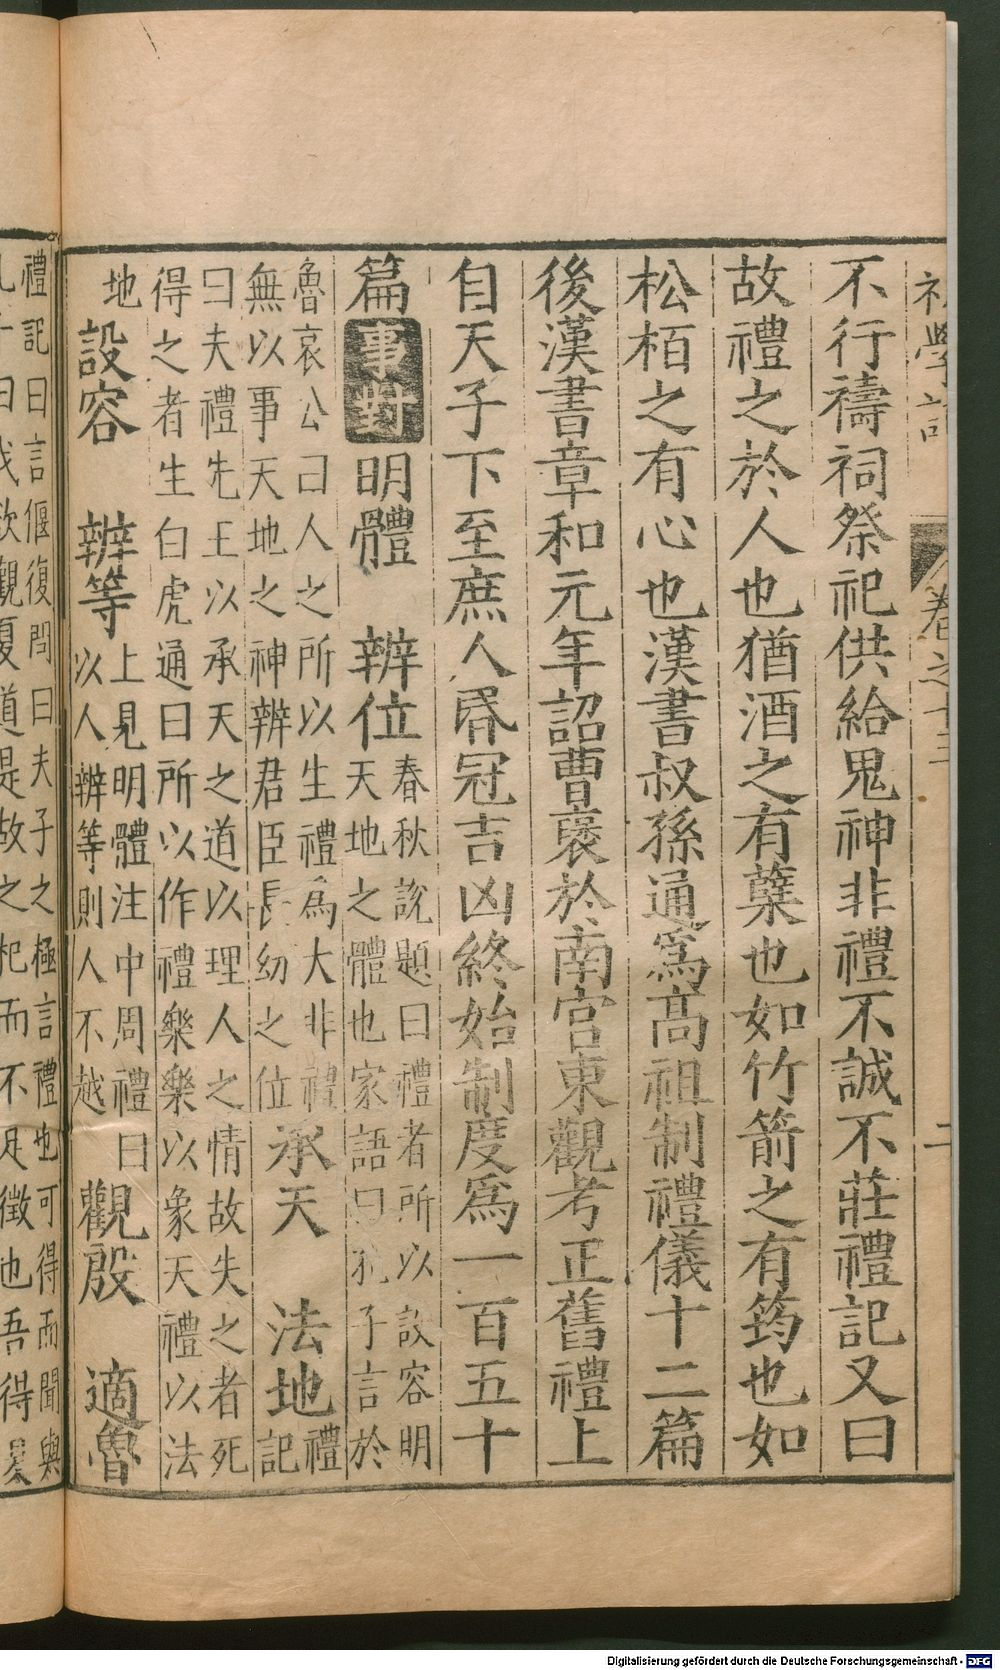 初學記
卷之十三
二
不行禱祠祭祀供給鬼神非禮不誠不莊禮記又曰
故禮之於人也猶酒之有蘖也如竹箭之有筠也如
松栢之有心也漢書叔孫通爲高祖制禮儀十二篇
後漢書章和元年詔曹褒於南宮東觀考正舊禮上
自天子下至庶人昏冠吉凶終始制度爲一百五十
篇事對明體 辨位
春秋說題曰禮者所以設容明
天地之體也家語曰孔子言於
魯哀公曰人之所以生禮爲大非禮
無以事天地之神辨君臣長幼之位
承天 法地
禮
記
曰夫禮先王以承天之道以理人之情故失之者死
得之者生白虎通曰所以作禮樂樂以象天禮以法
地
設容 辨等
上見明體注中周禮曰
以人辨等則人不越
觀殷 適魯
禮記曰言偃復問曰夫子之極言禮也可得而聞與
孔子曰我欲觀夏道是故之杞而不足徵也吾得夏
Digitalisierung gefördert durch die Deutsche Forschungsgemeinschaft - DFG